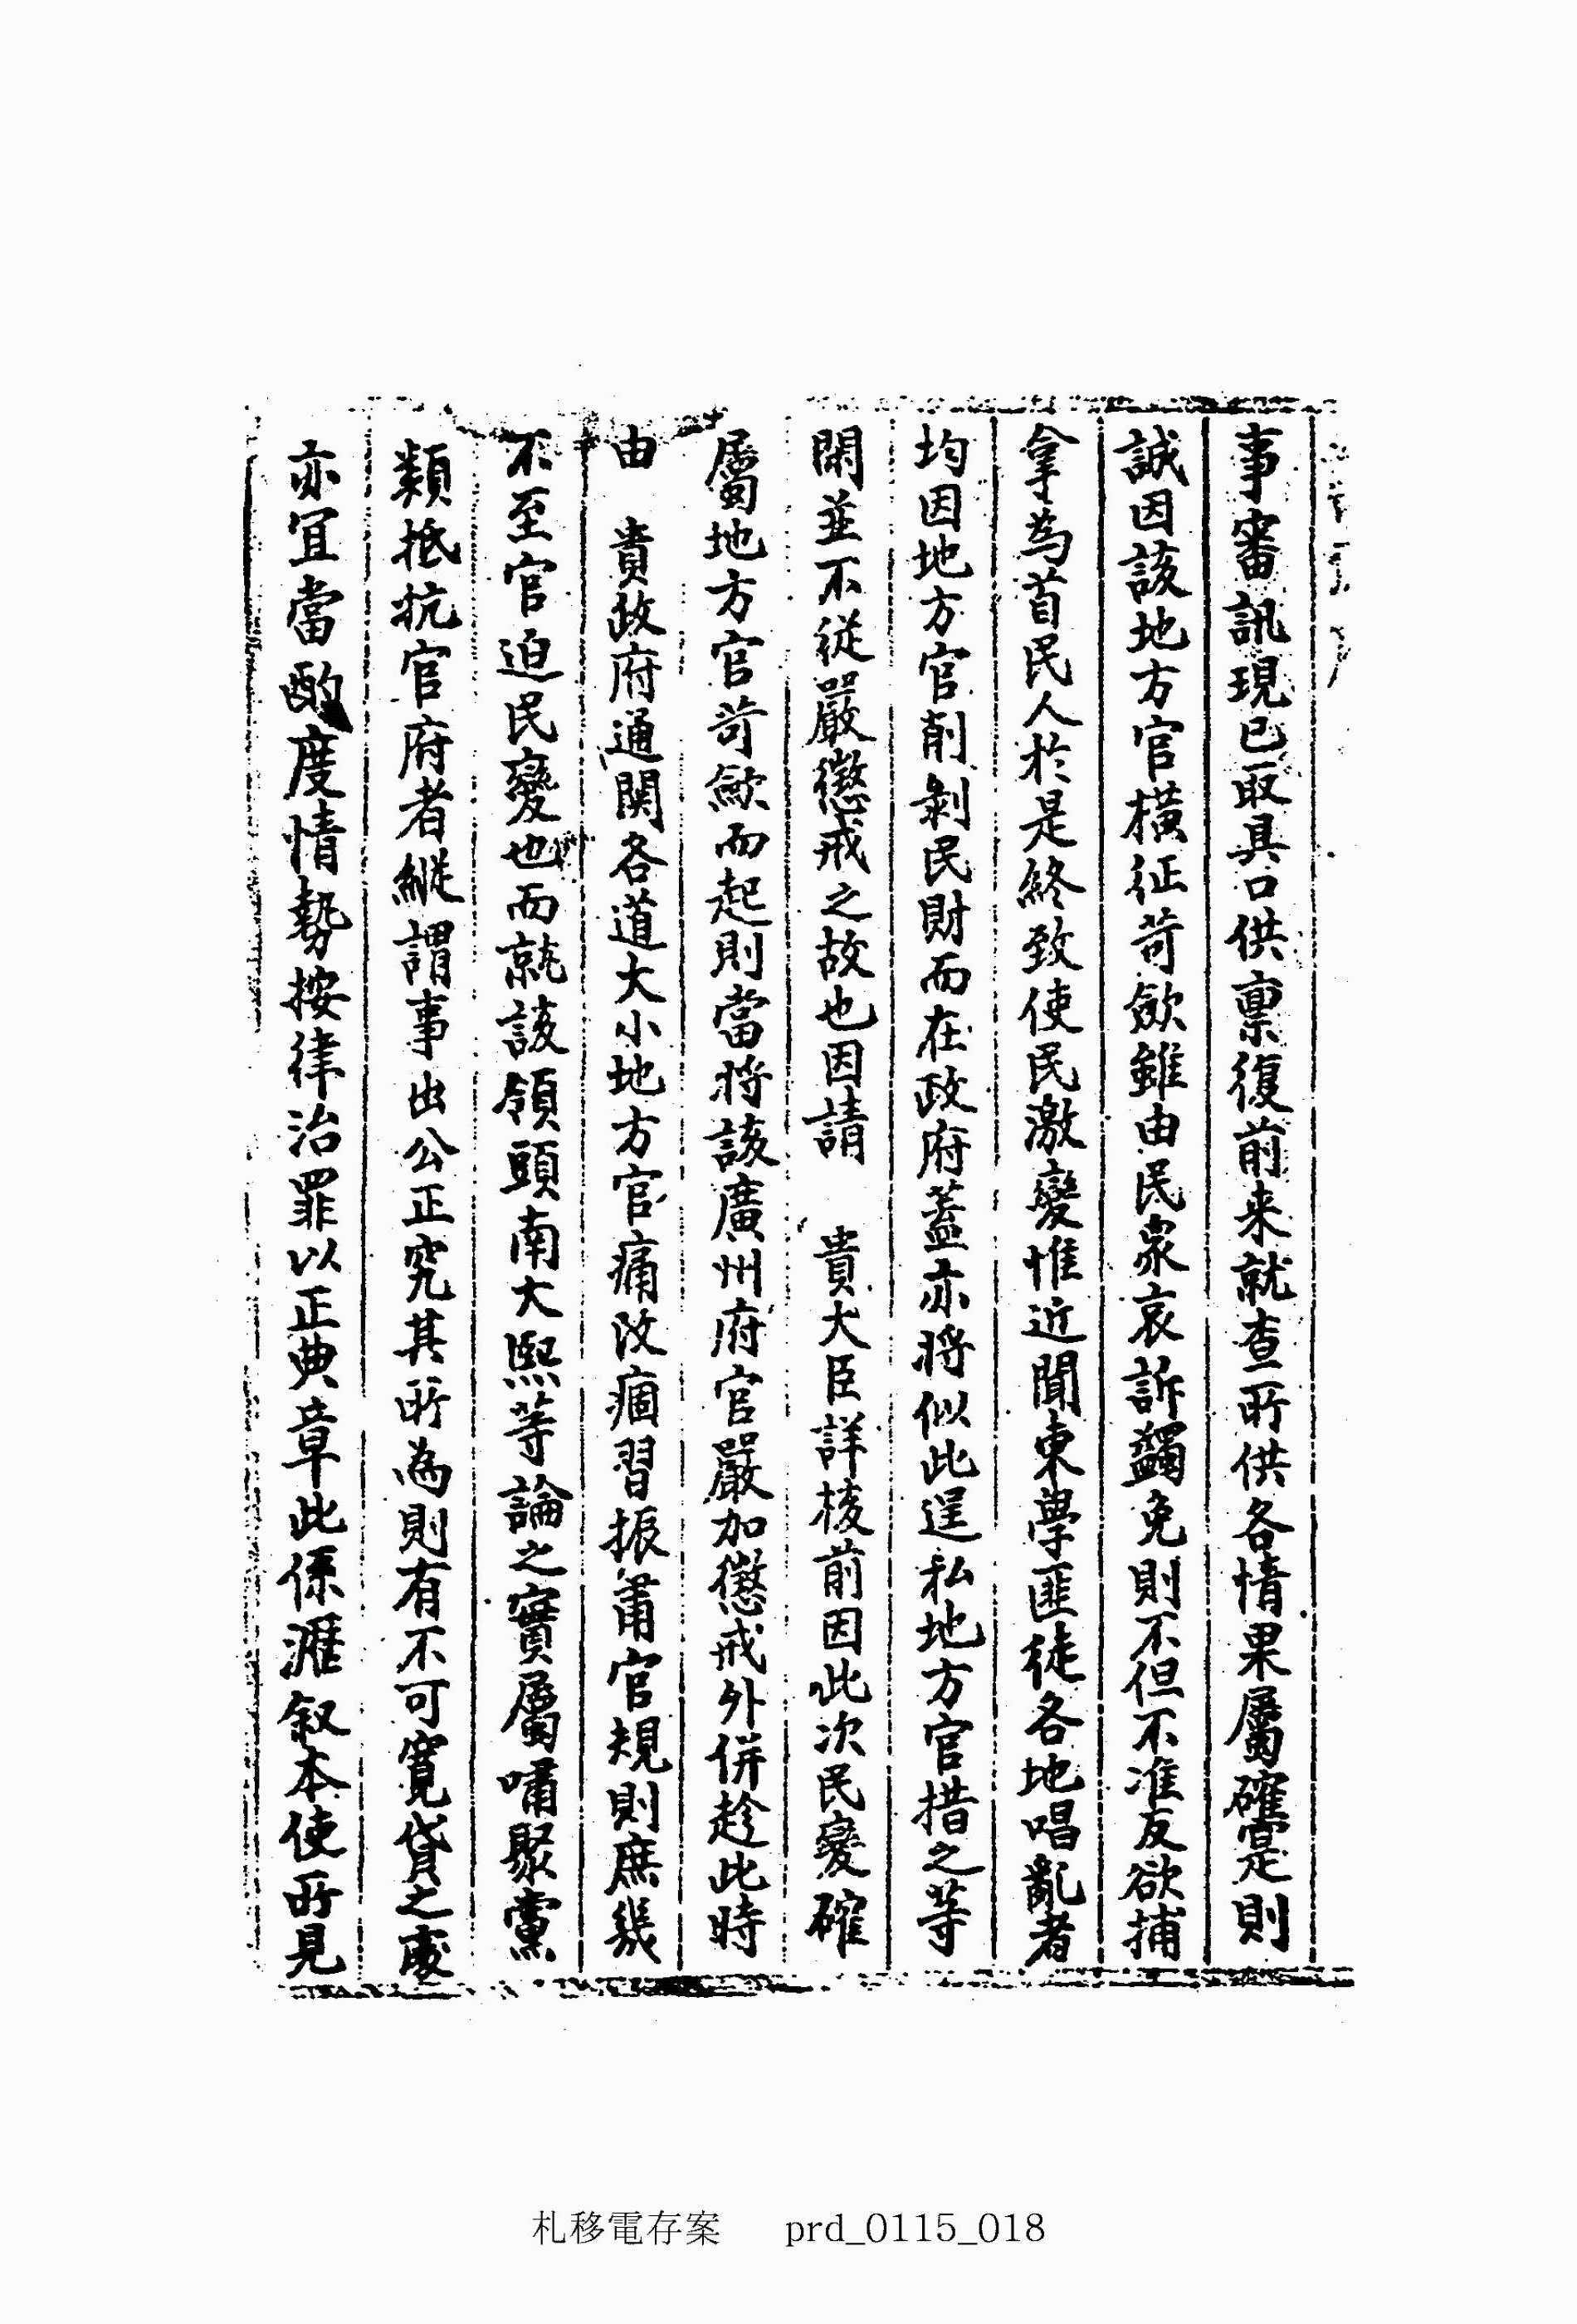 事審訊現已取具口供稟復前来就查所供各情果屬確寔則
誠因該地方官橫征苛斂雖由民衆哀訴蠲免則不但不准反欲捕
拿為首民人於是終致使民激變惟近聞東學匪徒各地唱亂者
均因地方官削剝民財而在政府蓋亦將似此逞私地方官措之等
閑並不從嚴懲戒之故也因請 貴大臣詳核前因此次民變確
屬地方官苛斂而起則當將該廣州府官嚴加懲戒外併趁此時
由 貴政府通関各道大小地方官痛改痼習振肅官規則庶幾
不至官迫民變也而就該領頭南大熙等論之實屬嘯聚黨
類抵抗官府者縱謂事出公正究其所為則有不可寬貸之處
亦宜當酌度情勢按律治罪以正典章此係雖叙本使所見
札移電存案 prd_0115_018